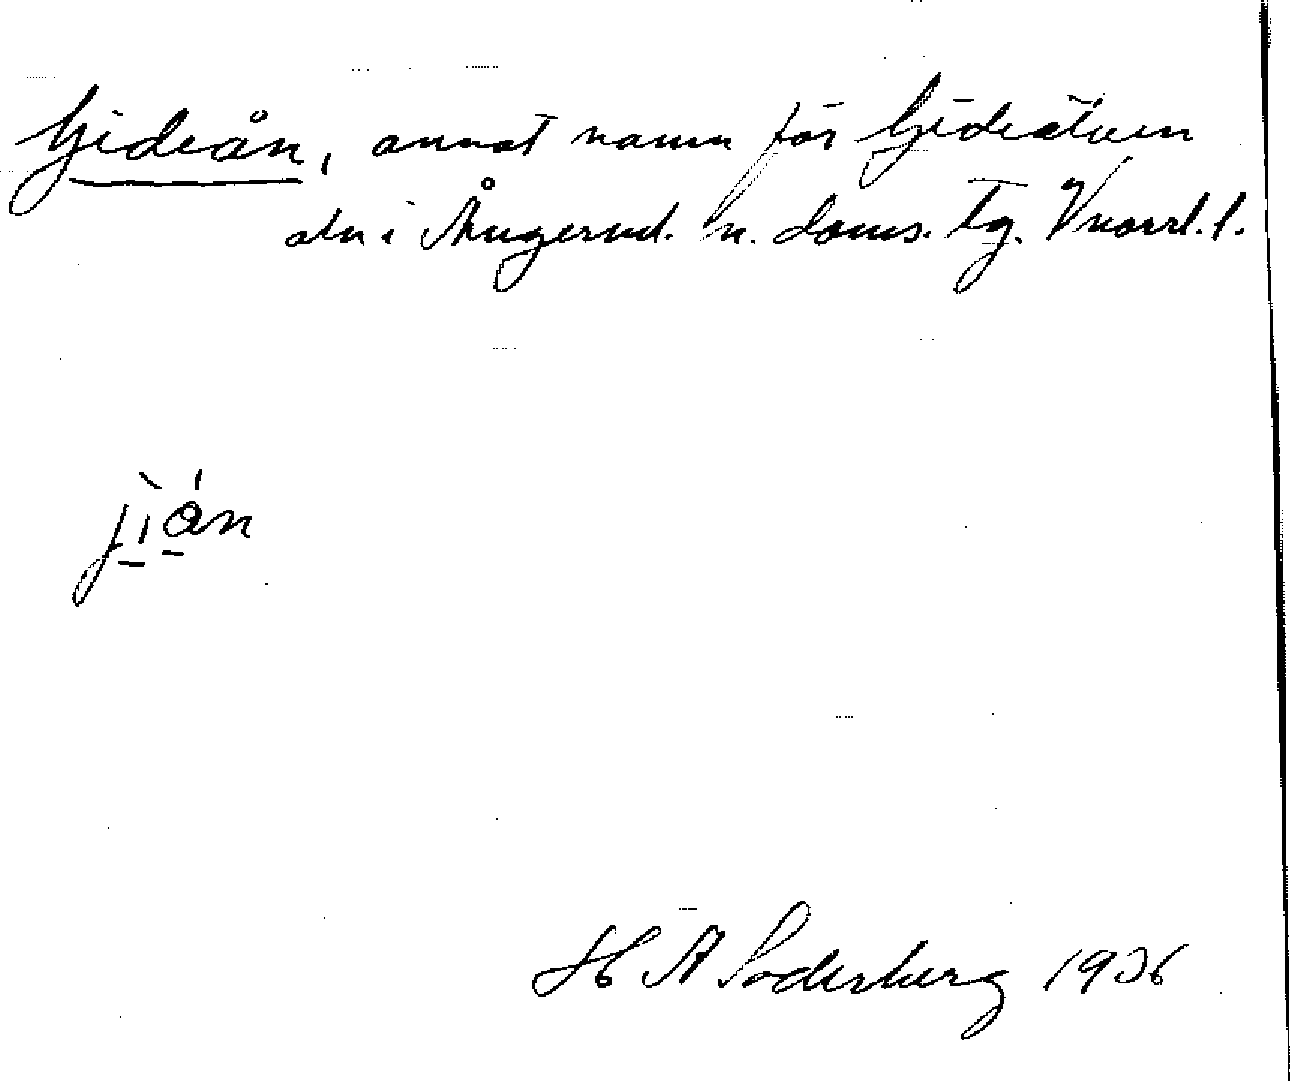 Gideån, annat namn för Gideälven
älv i Ångerml. n. doms. tg. Vnorrl. l.
jìán
H A Söderberg 1936